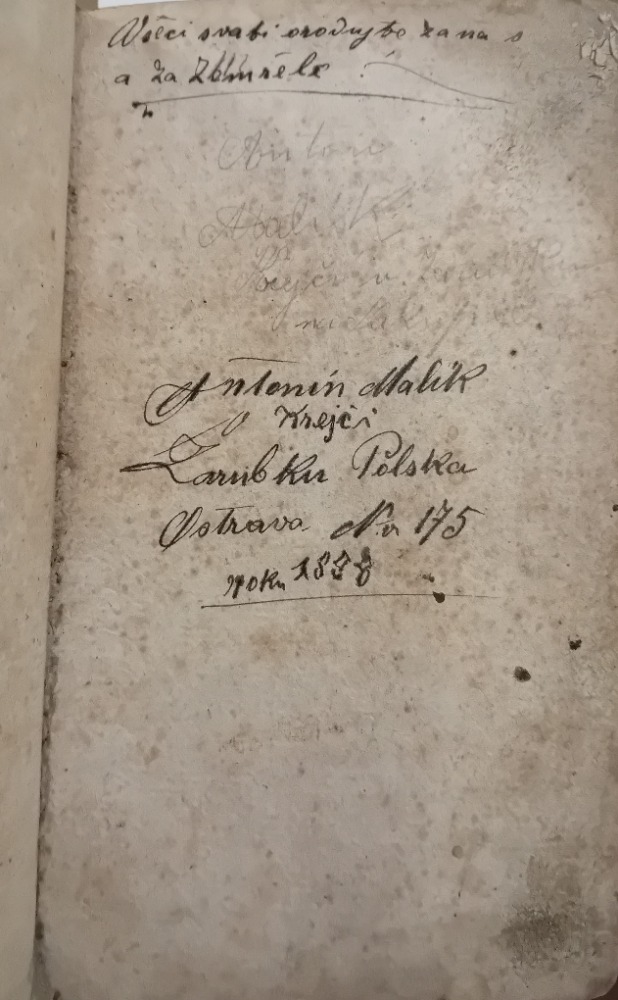 Všeci svati orodujte za na s
a za Zbmřele
Anton
Malik
Krejčí v
Antonín Malik
Krejči
Zarubku Polska
Ostrava No 175
roku 1878